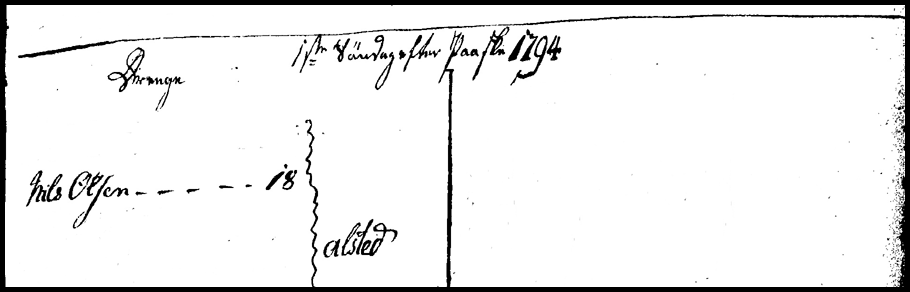 1ste Söndag efter Paaske 1794
Drenge
Nils Olsen - - - - - 18
alsted